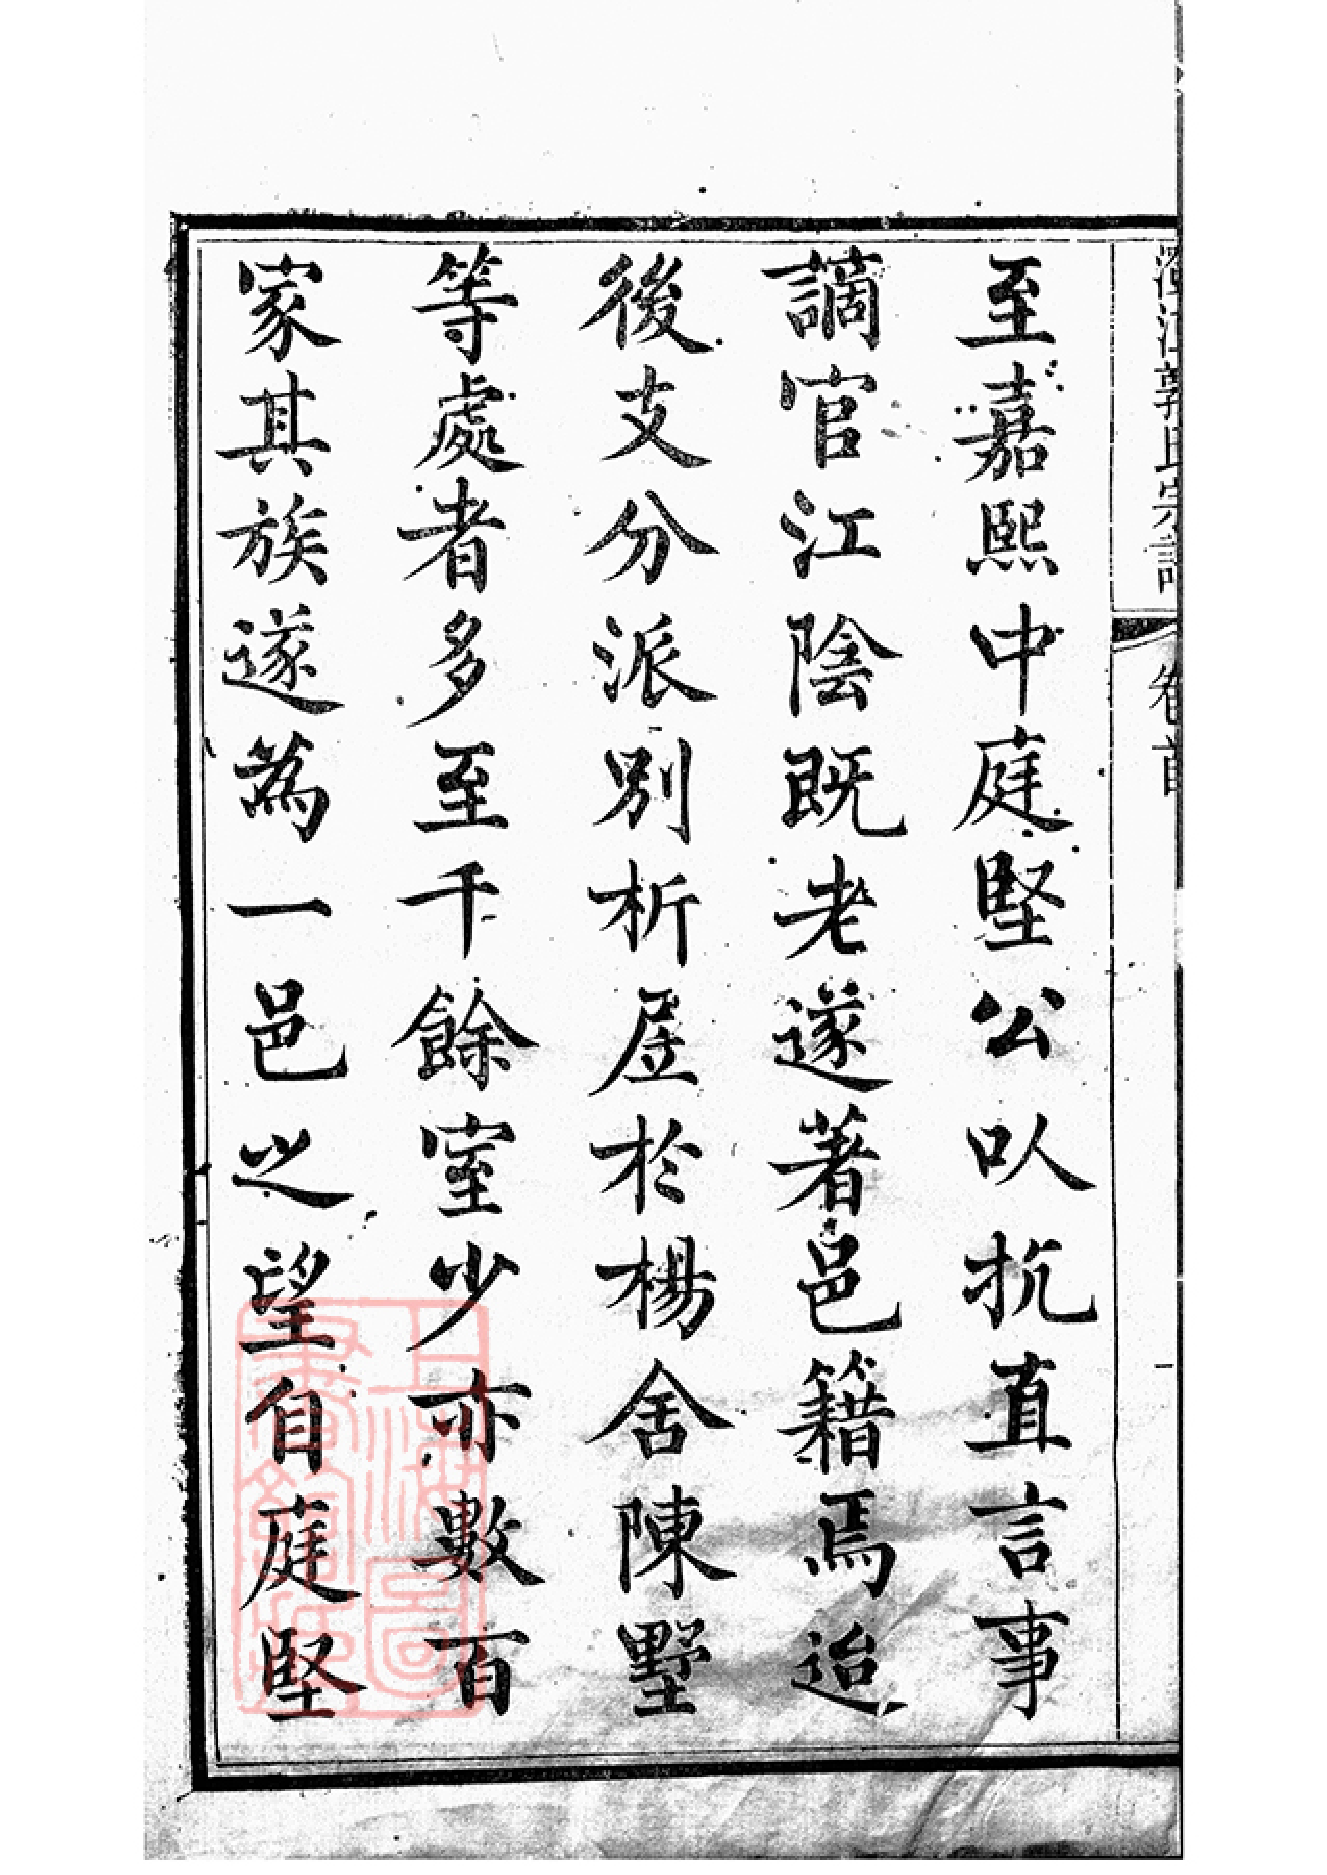 江郭氏宗譜 卷首 一
至嘉熙中庭堅公以抗直言事
謫官江陰既老遂著邑籍焉迨
後支分派別析居於楊舍陳墅
等處者多至千餘室少亦數百
家其族遂為一邑之望自庭堅
上海圖書館藏